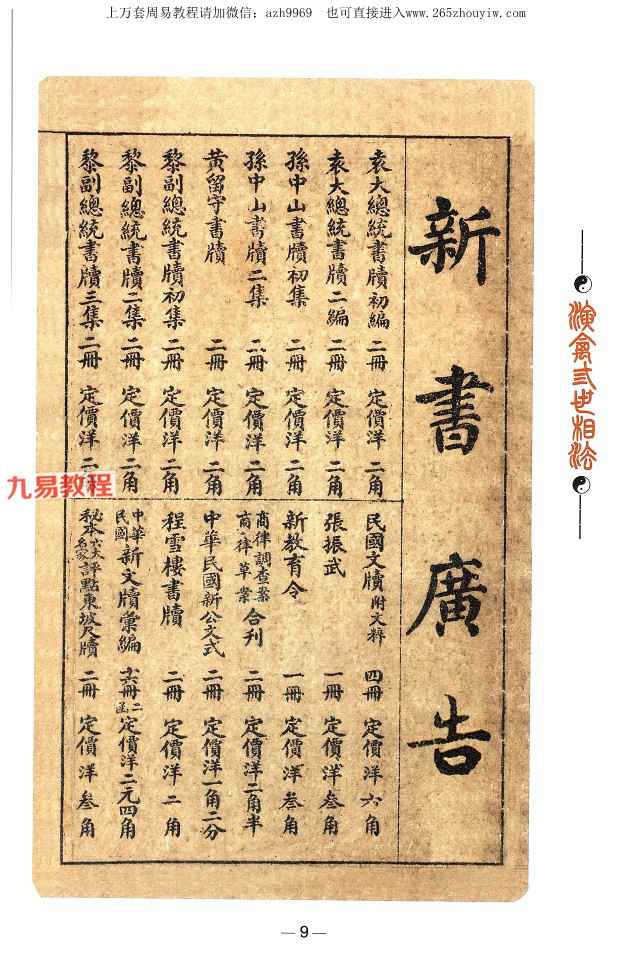 上万套周易教程请加微信：azh9969 也可直接进入www.265zhouyiw.com
新書廣告
袁大總統書牘初編 二冊 定價洋 二角
袁大總統書牘二編 二冊 定價洋 二角
孫中山書牘初集 二冊 定價洋 二角
孫中山書牘二集 二冊 定價洋 二角
黃留守書牘 二冊 定價洋 二角
黎副總統書牘初集 二冊 定價洋 二角
黎副總統書牘二集 二冊 定價洋 二角
黎副總統書牘三集 二冊 定價洋 二
民國文牘 附文粹 四冊 定價洋 六角
張振武 一冊 定價洋 叄角
新教育令 一冊 定價洋 叄角
商律調查案 商律草案 合刊 二冊 定價洋二角半
中華民國新公文式 二冊 定價洋一角二分
程雪樓書牘 二冊 定價洋 二角
中華民國 新文牘彙編 十六冊二函 定價洋二元四角
秘本六大名家評點東坡尺牘 二冊 定價洋 叄角
九易教程
演禽三世相法
—9—